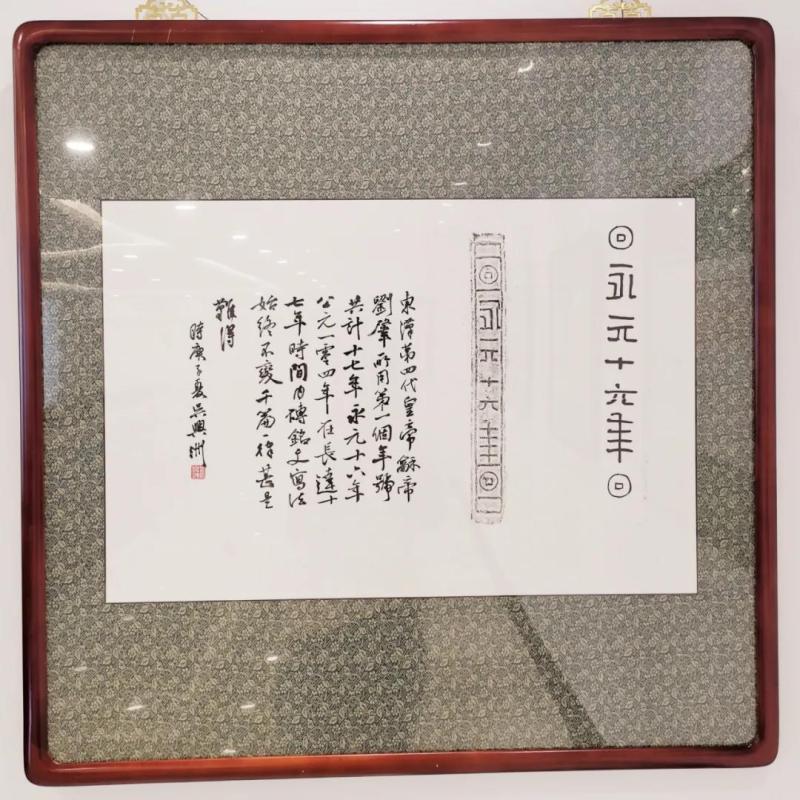 永元十六年
永元十六年
東漢第四代皇帝龢帝
劉肇所用第一個年號
共計十七年永元十六年
公元一零四年在長達十
七年時間内磚銘文寫法
始終不變千篇一律甚是
難得
時庚子夏吳興洲